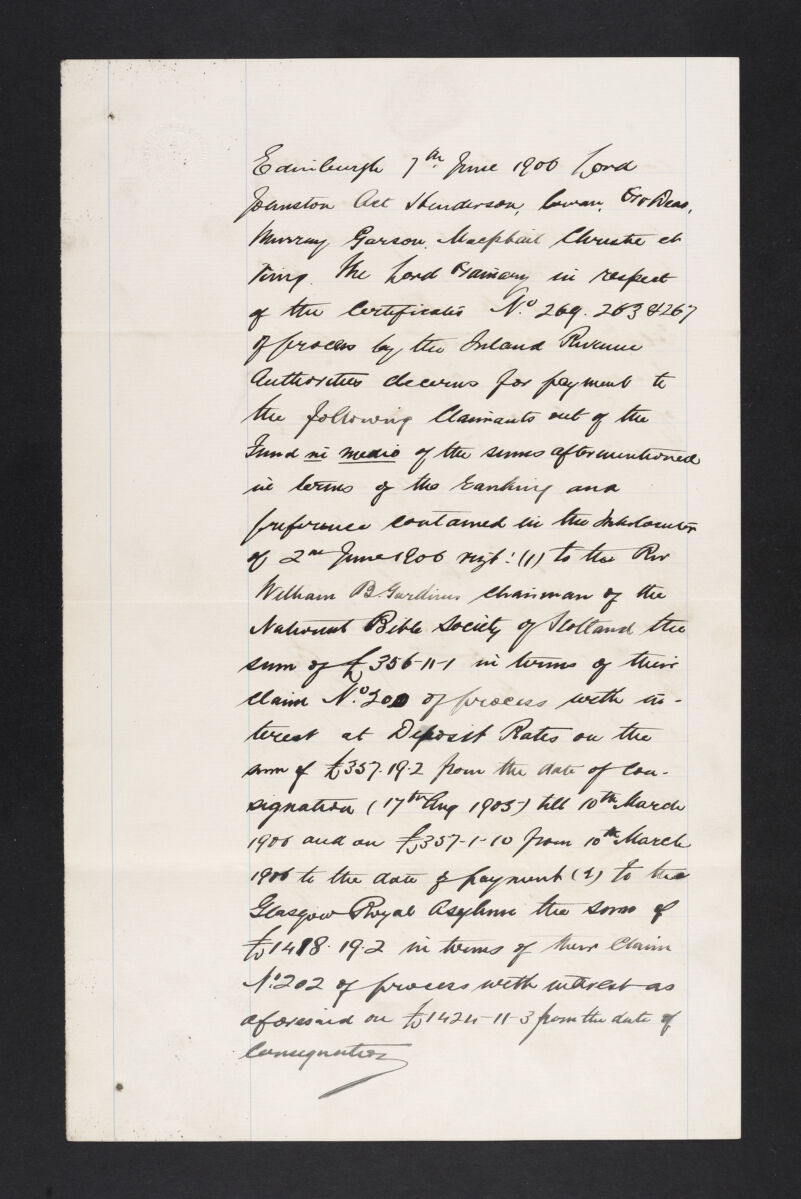 Edinburgh 7th June 1906 Lord
Johnston Act Henderson, Cowan,
Murray Garson, Macphail Christie et
The Lord Ordinary in respect
of the Certificates No. 269. 263 & 267
of process by the Inland Revenue
Authorities decerns for payment to
the following Claimants out of the
Fund in medio of the sums aftermentioned
in terms of the Ranking and
preference contained in the Interlocutor
of 2nd June 1906 vizt: (1) to the Rev
William B. Gardiner Chairman of the
National Bible Society of Scotland the
sum of £356-11-1 in terms of their
claim No. 200 of process with in-
terest at Deposit Rates on the
sum of £357.19.2 from the date of Con-
signation (17th Aug 1905) till 10th March
1906 and on £357-1-10 from 10th March
1906 to the date of payment (2) to the
Glasgow Royal Asylum the sum of
£1418.19.2 in terms of their Claim
No. 202 of process with interest as
aforesaid on £1424-11-3 from the date of
Consignation